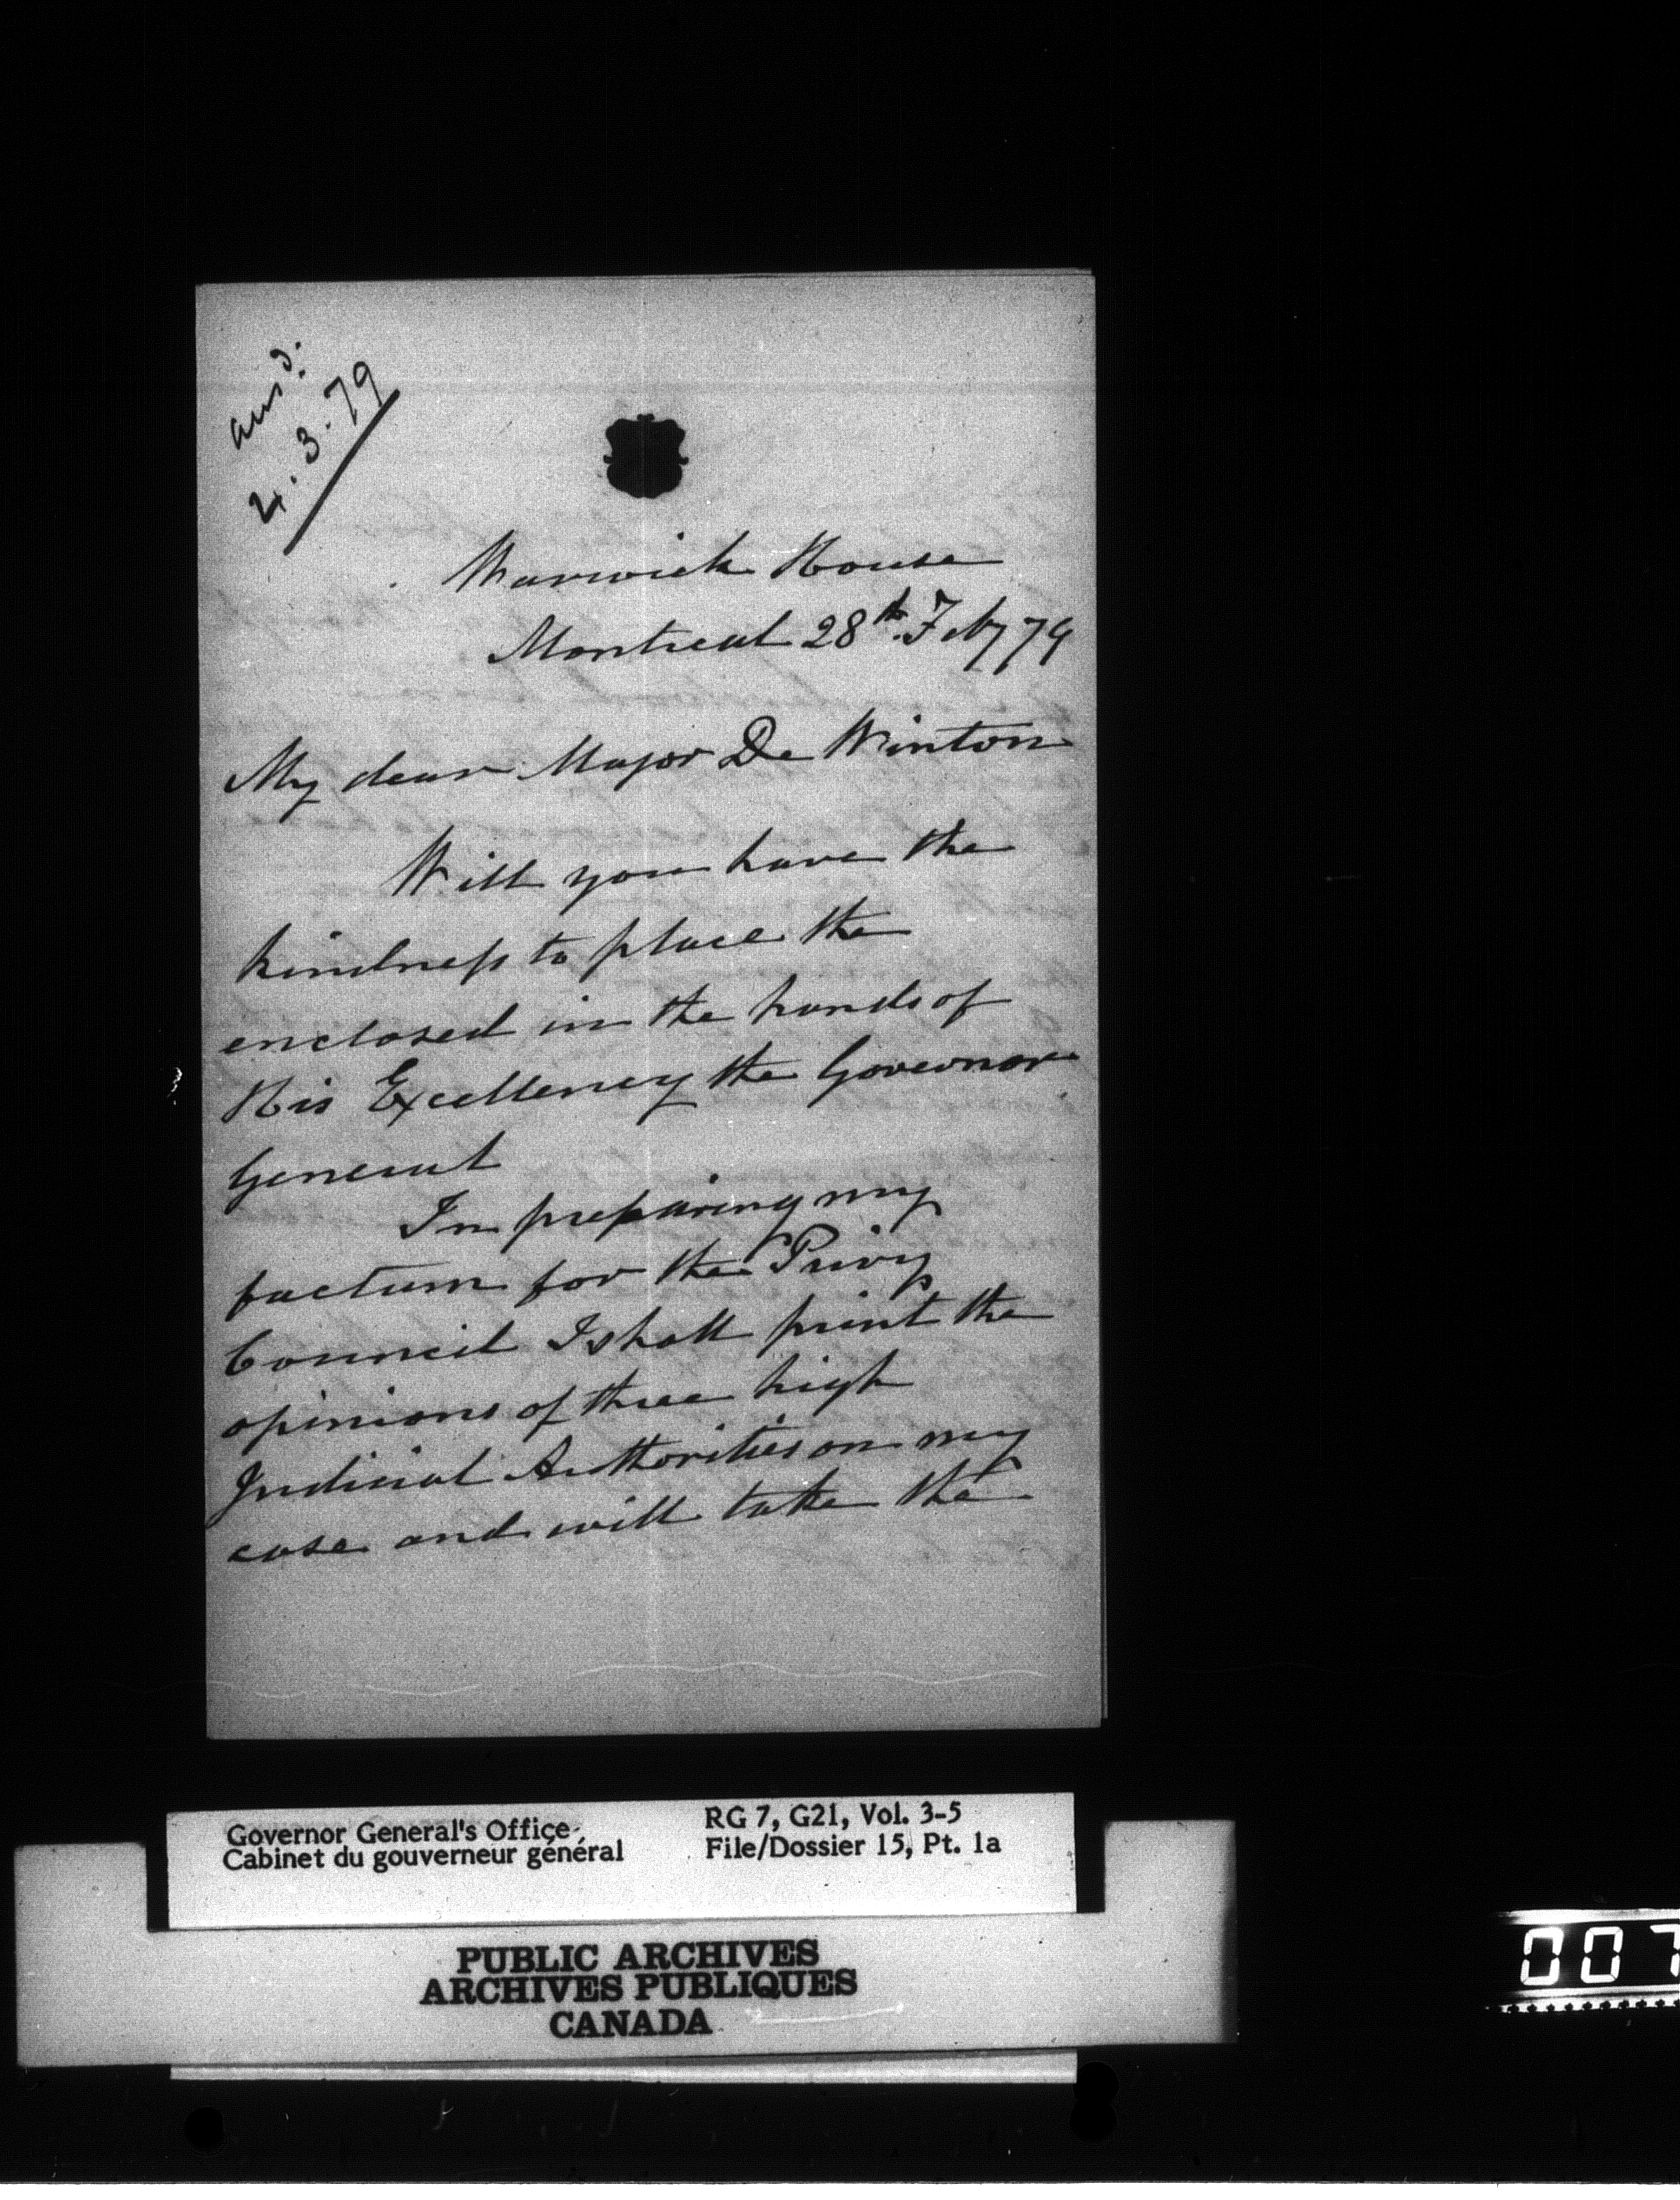 ansd.
4.3.79
Warwick House
Montreal 28th Feby 79
My dear Major De Winton
Will you have the
kindness to place the
enclosed in the hands of
His Excellency the Governor
General
In preparing my
factum for the Privy
Council I shall print the
opinions of three high
Judicial Authorities on my
case and will take the
Governor General's Office
Cabinet du gouverneur général
RG 7, G21, Vol. 3-5
File/Dossier 15, Pt. 1a
PUBLIC ARCHIVES
ARCHIVES PUBLIQUES
CANADA
007